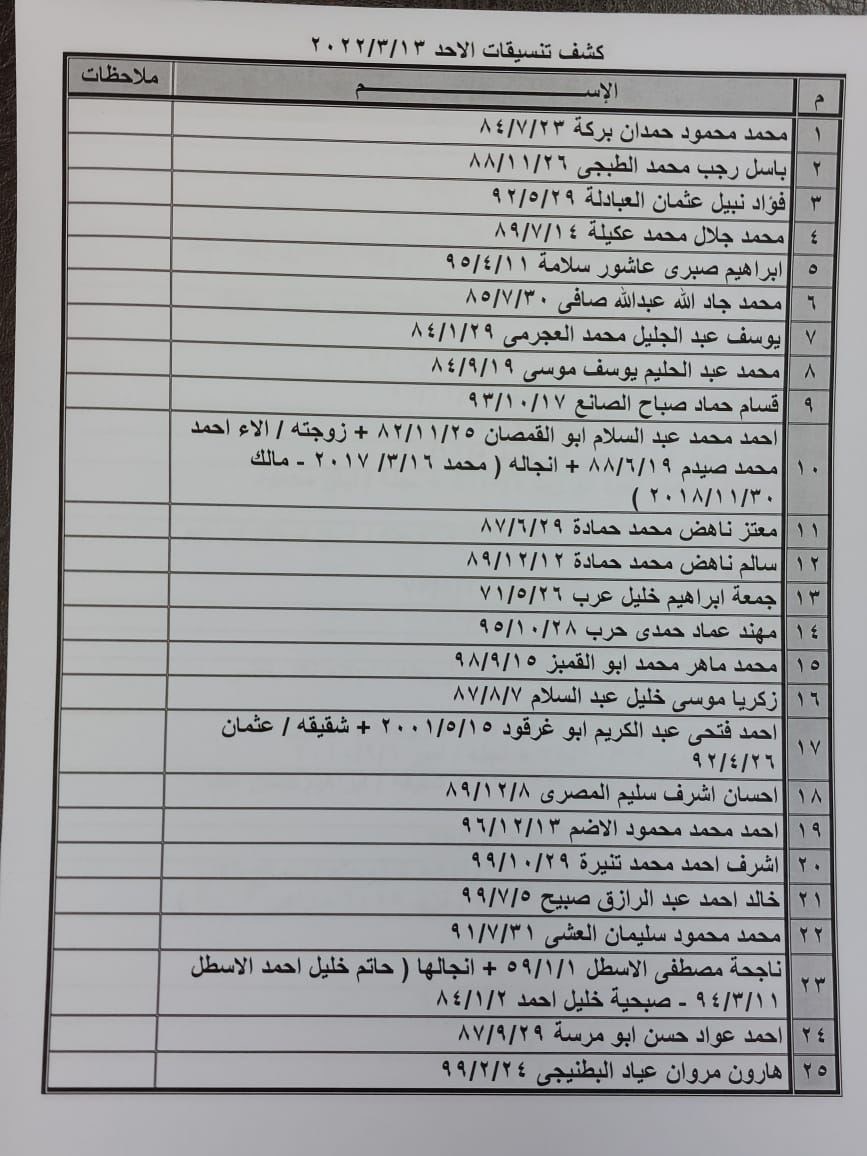 كشف تنسيقات الاحد ٢٠٢٢/٣/١٣
م الإســـــــــم ملاحظات
١ محمد محمود حمدان بركة ٨٤/٧/٢٣
٢ باسل رجب محمد الطبجى ٨٨/١١/٢٦
٣ فؤاد نبيل عثمان العبادلة ٩٢/٥/٢٩
٤ محمد جلال محمد عكيلة ٨٩/٧/١٤
٥ ابراهيم صبرى عاشور سلامة ٩٥/٤/١١
٦ محمد جاد الله عبدالله صافى ٨٥/٧/٣٠
٧ يوسف عبد الجليل محمد العجرمى ٨٤/١/٢٩
٨ محمد عبد الحليم يوسف موسى ٨٤/٩/١٩
٩ قسام حماد صباح الصانع ٩٣/١٠/١٧
١٠ احمد محمد عبد السلام ابو القمصان ٨٢/١١/٢٥ + زوجته / الاء احمد
محمد صيدم ٨٨/٦/١٩ + انجاله ( محمد ٢٠١٧/٣/١٦ - مالك
٢٠١٨/١١/٣٠ )
١١ معتز ناهض محمد حمادة ٨٧/٦/٢٩
١٢ سالم ناهض محمد حمادة ٨٩/١٢/١٢
١٣ جمعة ابراهيم خليل عرب ٧١/٥/٢٦
١٤ مهند عماد حمدى حرب ٩٥/١٠/٢٨
١٥ محمد ماهر محمد ابو القمبز ٩٨/٩/١٥
١٦ زكريا موسى خليل عبد السلام ٨٧/٨/٧
١٧ احمد فتحى عبد الكريم ابو غرقود ٢٠٠١/٥/١٥ + شقيقه / عثمان
٩٢/٤/٢٦
١٨ احسان اشرف سليم المصرى ٨٩/١٢/٨
١٩ احمد محمد محمود الاضم ٩٦/١٢/١٣
٢٠ اشرف احمد محمد تنيرة ٩٩/١٠/٢٩
٢١ خالد احمد عبد الرازق صبيح ٩٩/٧/٥
٢٢ محمد محمود سليمان العشى ٩١/٧/٣١
٢٣ ناجحة مصطفى الاسطل ٥٩/١/١ + انجالها ( حاتم خليل احمد الاسطل
٩٤/٣/١١ - صبحية خليل احمد ٨٤/١/٢
٢٤ احمد عواد حسن ابو مرسة ٨٧/٩/٢٩
٢٥ هارون مروان عياد البطنيجى ٩٩/٢/٢٤